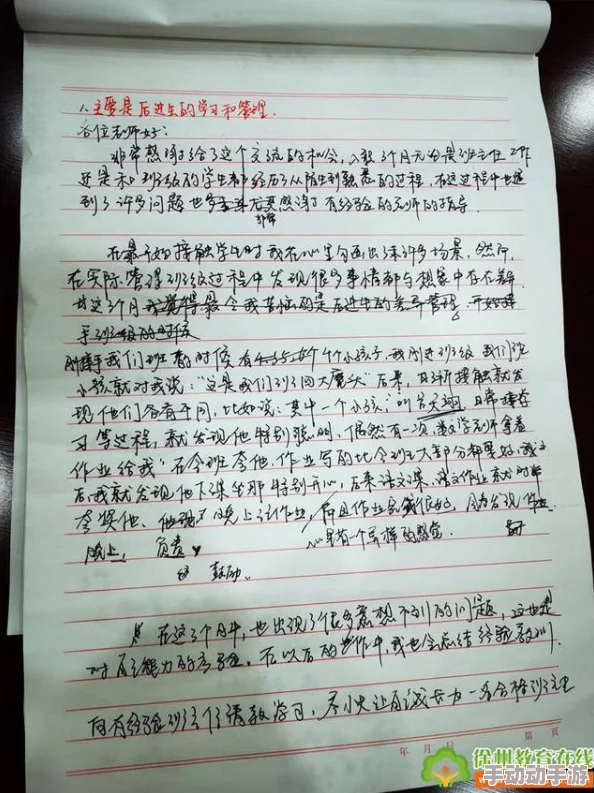 1、主要是后进生的学习和管理.
各位老师好:
非常感谢给了这个交流的机会,入职3个月无论是班主任工作
还是和班级的学生都经历了从陌生到熟悉的过程,在这过程中也遇
到了许多问题也 非常感谢了有经验的老师的指导.
在最开始接触学生时我在心里勾画出了许多场景,然而
在实际管理班级过程中发现很多事情都与想象中存在差异
这3个月 令我苦恼的是后进生的 管理。
手班级的时候
我们班的时候有 个小孩子,我刚进班级 我们班
小孩就对我说:"这是我们班四大魔头"后来,
现他们各有不同,比如说:其中一个小孩,叫 ,日常
习等过程,就发现他特别聪明,偶然有一次, 老师拿着
作业给我 在全班夸他,作业写的比全班大部分都要好,
后,我就发现他下课坐那特别开心,后来语文课,语文作业
夸奖他、他 晚上 作业, 而且作业 很好, 发现
晚上, 负责 心里有个 的感觉.
鼓励.
在这3个月中,也出现了很多意想不到的问题,这也是
对自己能力的考验,在以后的工作中,我也会总结经验教训,
向有经验班主任请教学习,尽快让自己成长为一名合格班主任
年 月 日 第 页
徐州教育在线
手动动手游